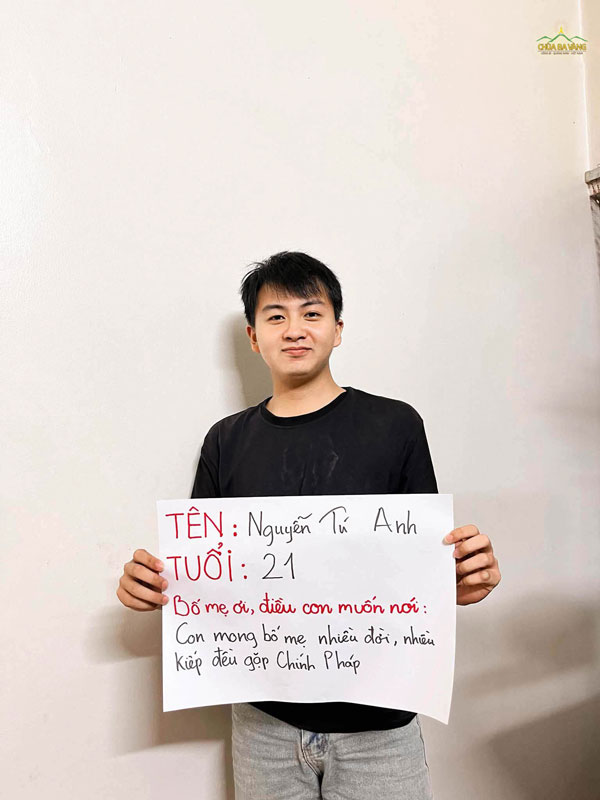 CHÙA BA VÀNG
TÊN: Nguyễn Tú Anh
TUỔI: 21
Bố mẹ ơi, điều con muốn nói:
Con mong bố mẹ nhiều đời, nhiều
kiếp đều gặp Chính Pháp